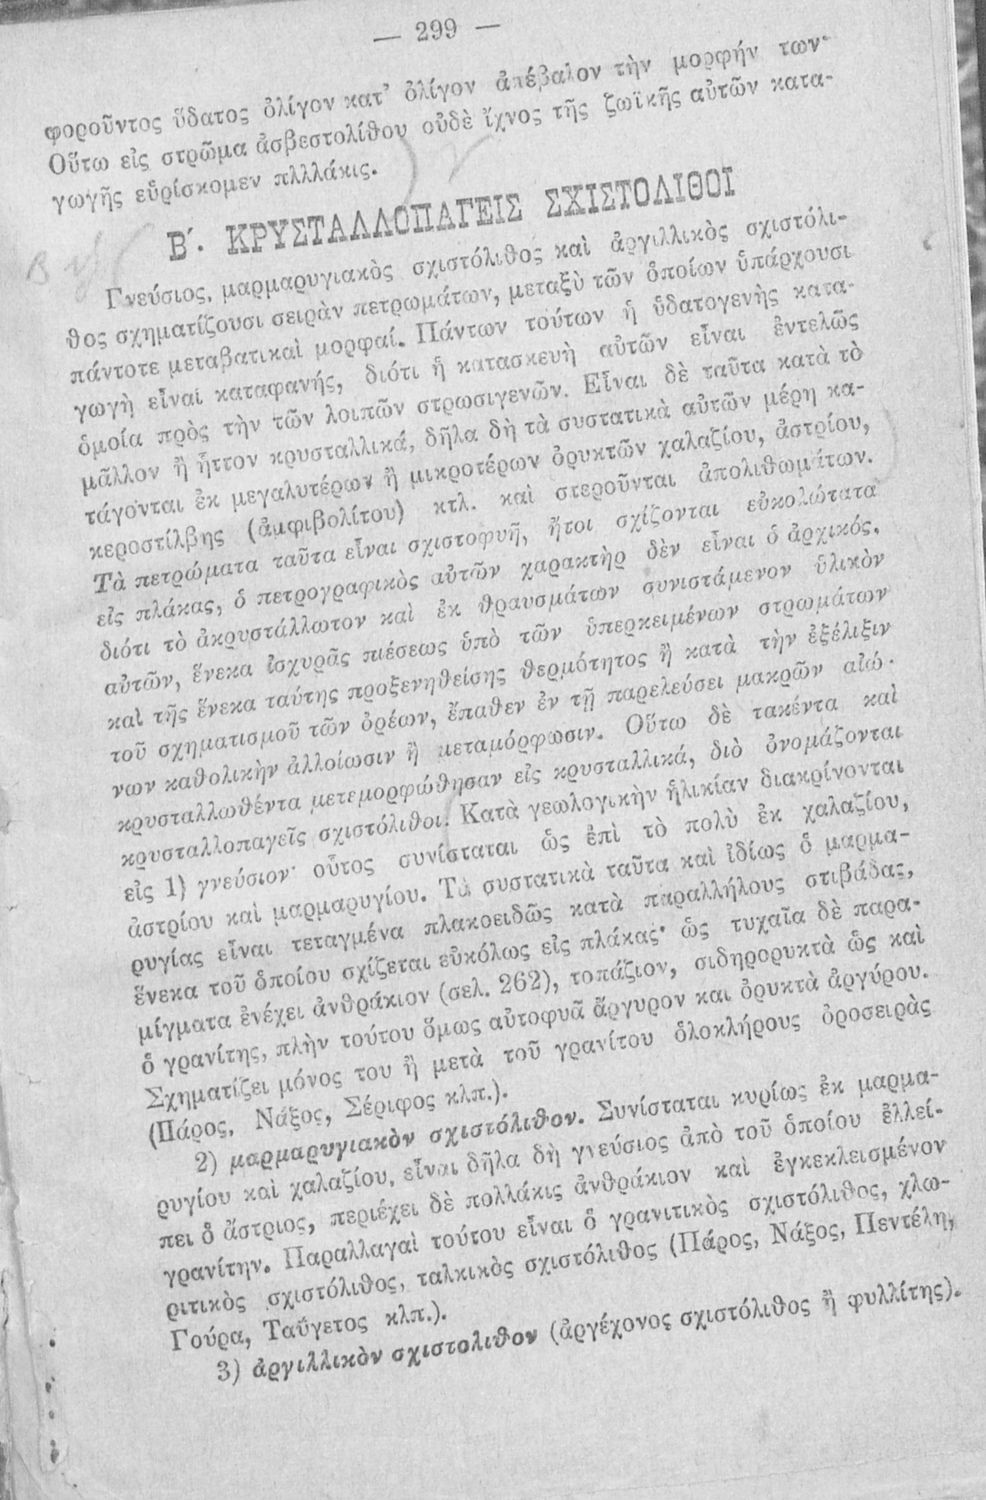 — 299 —
φοροῦντος ὕδατος ὀλίγον κατ’ ὀλίγον ἀπέβαλον τὴν μορφήν των·
Οὕτω εἰς στρῶμα ἀσβεστολίθου οὐδὲ ἴχνος τῆς ζωϊκῆς αὐτῶν κατα-
γωγῆς εὑρίσκομεν πλλλάκις.
Β΄. ΚΡΥΣΤΑΛΛΟΠΑΓΕΙΣ ΣΧΙΣΤΟΛΙΘΟΙ
Γνεύσιος, μαρμαρυγιακὸς σχιστόλιθος καὶ ἀργιλλικὸς σχιστόλι-
θος σχηματίζουσι σειρὰν πετρωμάτων, μεταξὺ τῶν ὁποίων ὑπάρχουσι
πάντοτε μεταβατικαὶ μορφαί. Πάντων τούτων ἡ ὑδατογενὴς κατα-
γωγὴ εἶναι καταφανής, διότι ἡ κατασκευὴ αὐτῶν εἶναι ἐντελῶς
ὁμοία πρὸς τὴν τῶν λοιπῶν στρωσιγενῶν. Εἶναι δὲ ταῦτα κατὰ τὸ
μᾶλλον ἢ ἧττον κρυσταλλικά, δῆλα δὴ τὰ συστατικὰ αὐτῶν μέρη κα-
τάγονται ἐκ μεγαλυτέρων ἢ μικροτέρων ὀρυκτῶν χαλαζίου, ἀστρίου,
κεροστίλβης (ἀμφιβολίτου) κτλ. καὶ στεροῦνται ἀπολιθωμάτων.
Τὰ πετρώματα ταῦτα εἶναι σχιστοφυῆ, ἤτοι σχίζονται εὐκολώτατα
εἰς πλάκας, ὁ πετρογραφικὸς αὐτῶν χαρακτὴρ δὲν εἶναι ὁ ἀρχικός,
διότι τὸ ἀκρυστάλλωτον καὶ ἐκ θραυσμάτων συνιστάμενον ὑλικὸν
αὐτῶν, ἕνεκα ἰσχυρᾶς πιέσεως ὑπὸ τῶν ὑπερκειμένων στρωμάτων
καὶ τῆς ἕνεκα ταύτης προξενηθείσης θερμότητος ἢ κατὰ τὴν ἐξέλιξιν
τοῦ σχηματισμοῦ τῶν ὀρέων, ἔπαθεν ἐν τῇ παρελεύσει μακρῶν αἰώ-
νων καθολικὴν ἀλλοίωσιν ἢ μεταμόρφωσιν. Οὕτω δὲ τακέντα καὶ
κρυσταλλωθέντα μετεμορφώθησαν εἰς κρυσταλλικά, διὸ ὀνομάζονται
κρυσταλλοπαγεῖς σχιστόλιθοι. Κατὰ γεωλογικὴν ἡλικίαν διακρίνονται
εἰς 1) γνεύσιον· οὗτος συνίσταται ὡς ἐπὶ τὸ πολὺ ἐκ χαλαζίου,
ἀστρίου καὶ μαρμαρυγίου. Τὰ συστατικὰ ταῦτα καὶ ἰδίως ὁ μαρμα-
ρυγίας εἶναι τεταγμένα πλακοειδῶς κατὰ παραλλήλους στιβάδας,
ἕνεκα τοῦ ὁποίου σχίζεται εὐκόλως εἰς πλάκας· ὡς τυχαῖα δὲ παρα-
μίγματα ἐνέχει ἀνθράκιον (σελ. 262), τοπάζιον, σιδηρορυκτὰ ὡς καὶ
ὁ γρανίτης, πλὴν τούτου ὅμως αὐτοφυᾶ ἄργυρον και ὀρυκτὰ ἀργύρου.
Σχηματίζει μόνος του ἢ μετὰ τοῦ γρανίτου ὁλοκλήρους ὀροσειρὰς
(Πάρος, Νάξος, Σέριφος κλπ.).
2) μαρμαρυγιακὸν σχιστόλιθον. Συνίσταται κυρίως ἐκ μαρμα-
ρυγίου καὶ χαλαζίου, εἶναι δῆλα δὴ γνεύσιος ἀπὸ τοῦ ὁποίου ἐλλεί-
πει ὁ ἄστριος, περιέχει δὲ πολλάκις ἀνθράκιον καὶ ἐγκεκλεισμένον
γρανίτην. Παραλλαγαὶ τούτου εἶναι ὁ γρανιτικὸς σχιστόλιθος, χλω-
ριτικὸς σχιστόλιθος, ταλκικὸς σχιστόλιθος (Πάρος, Νάξος, Πεντέλη,
Γούρα, Ταΰγετος κλπ.).
3) ἀργιλλικὸν σχιστολιθον (ἀργέχονος σχιστόλιθος ἢ φυλλίτης).